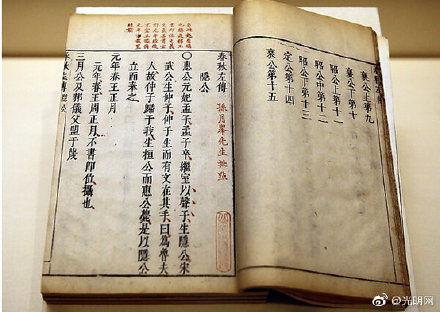 襄公上第九
襄公下第十
昭公上第十一
昭公中第十二
昭公下第十三
定公第十四
哀公第十五
春秋左傳
孫月峯先生批點
隱公
○惠公元妃孟子孟子卒繼室以聲子生隱公宋
武公生仲子仲子生而有文在其手曰爲魯夫
人故仲子歸于我生桓公而惠公薨是以隱公
立而奉之
元年春王正月
元年春王周正月不書即位攝也
三月公及邾儀父盟于蔑
@光明网